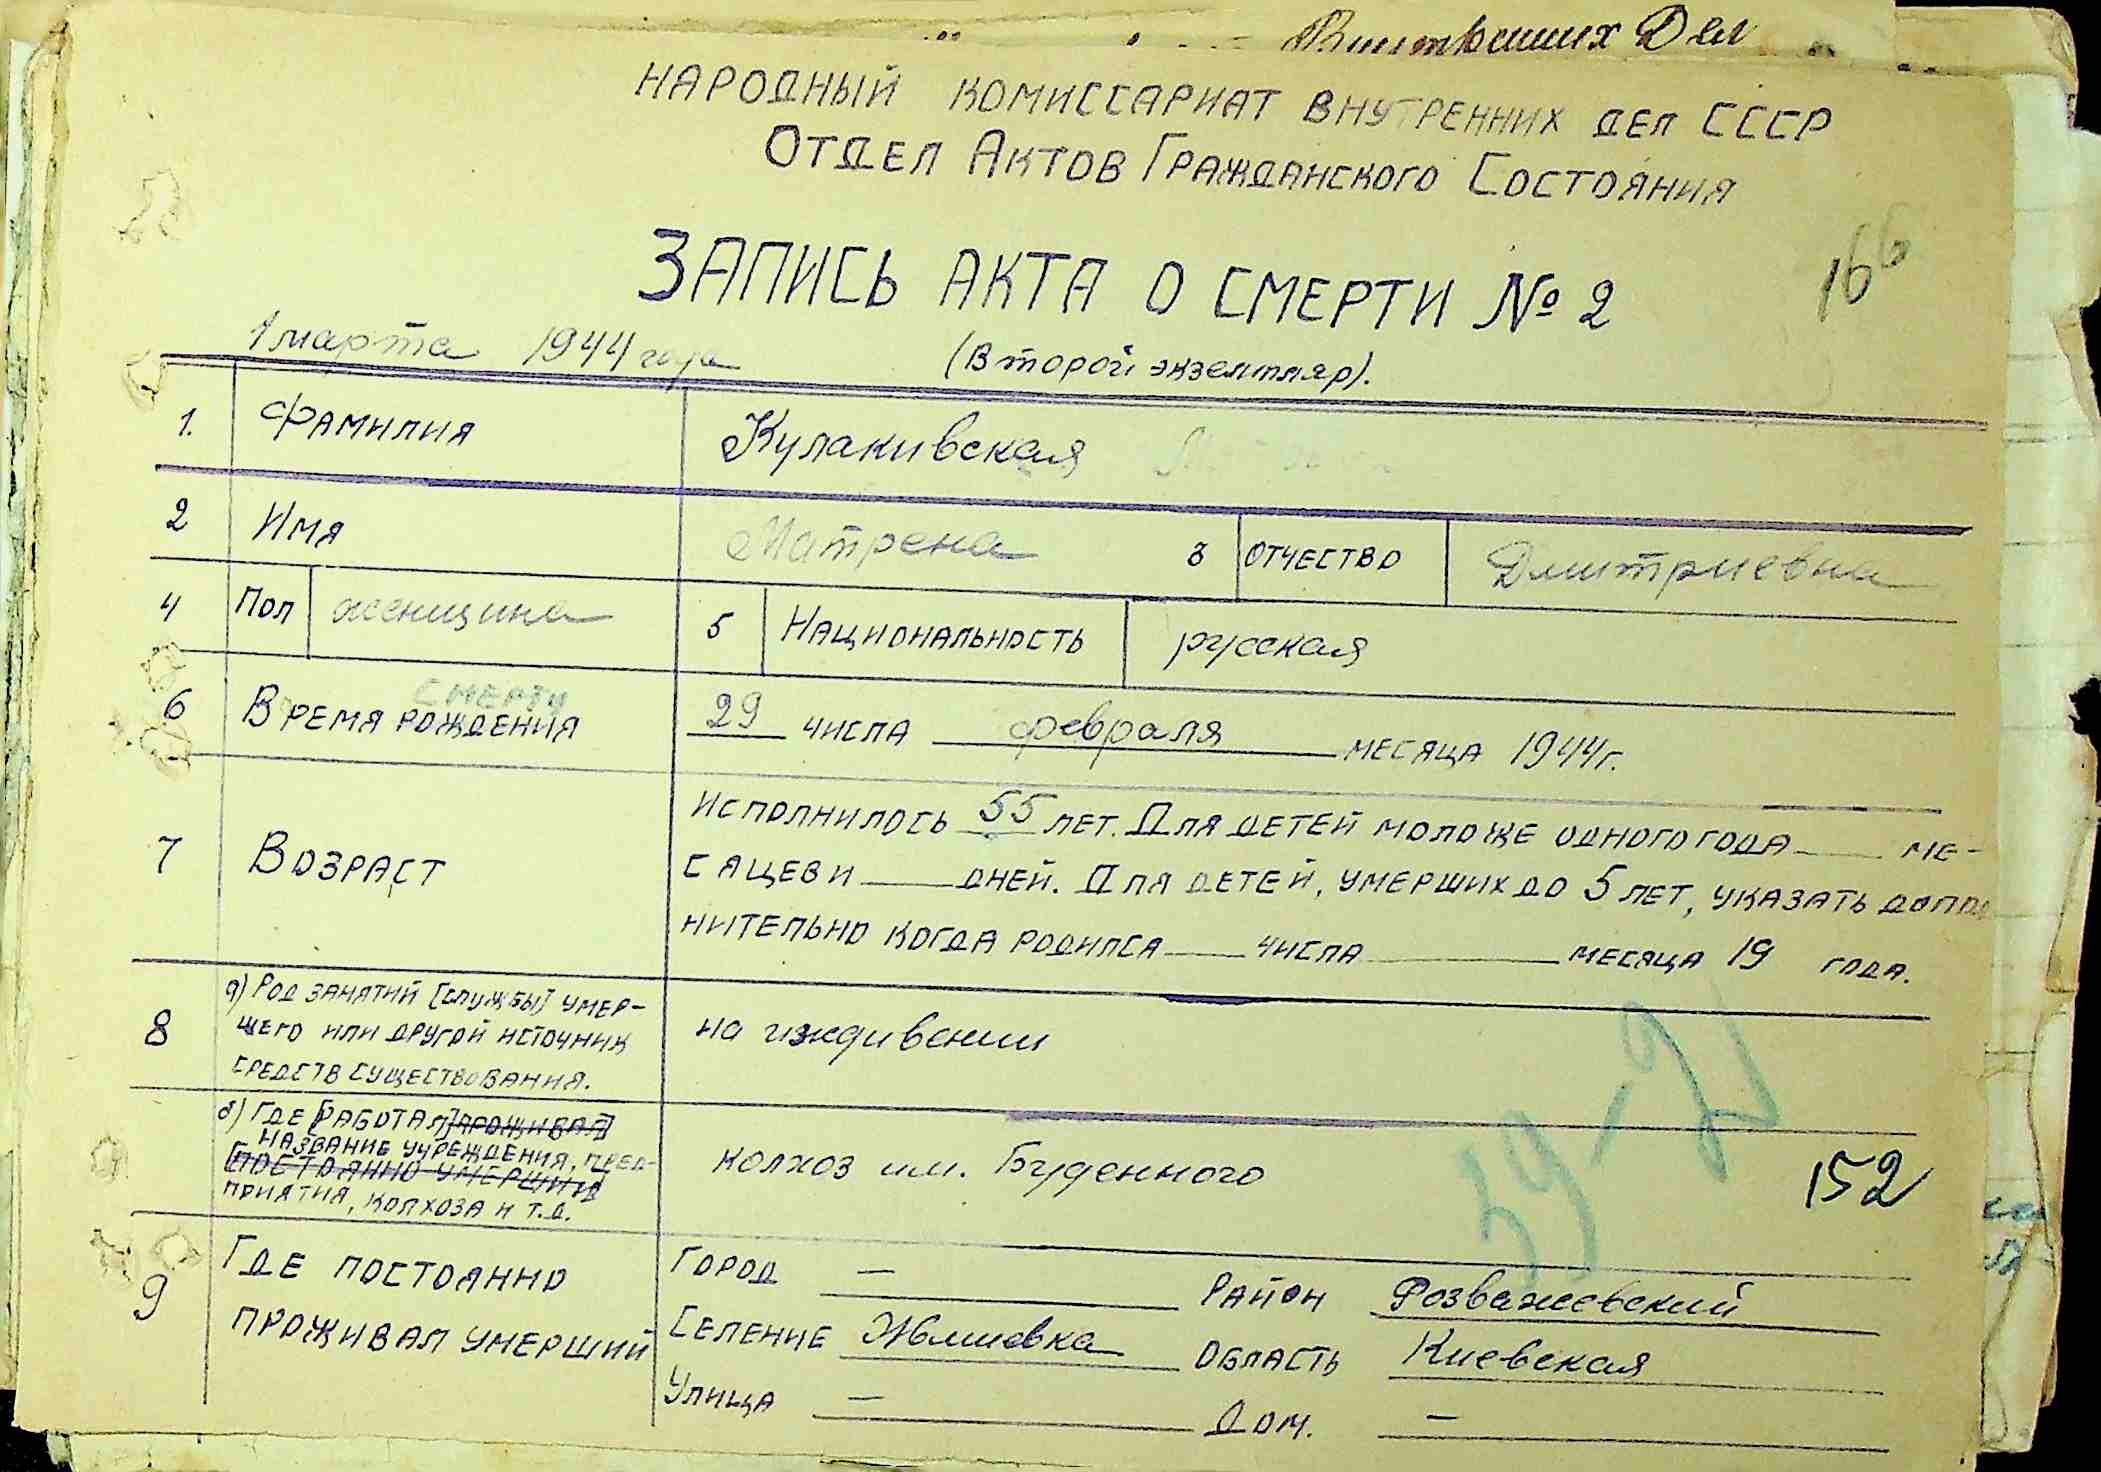 Внутренних Дел
НАРОДНЫЙ КОМИССАРИАТ ВНУТРЕННИХ ДЕЛ СССР
ОТДЕЛ АКТОВ ГРАЖДАНСКОГО СОСТОЯНИЯ
166
ЗАПИСЬ АКТА О СМЕРТИ № 2
1 марта 1944 года (Второй экземпляр).
1. ФАМИЛИЯ Кулакивская
2 ИМЯ Матрена 3 ОТЧЕСТВО Дмитриевна
4 ПОЛ женщина 5 НАЦИОНАЛЬНОСТЬ русская
СМЕРТИ
6 ВРЕМЯ РОЖДЕНИЯ 29 ЧИСЛА февраля МЕСЯЦА 1944г.
7 ВОЗРАСТ ИСПОЛНИЛОСЬ 55 ЛЕТ. ДЛЯ ДЕТЕЙ МОЛОЖЕ ОДНОГО ГОДА ___ МЕ-
САЦЕВ И ___ ДНЕЙ. ДЛЯ ДЕТЕЙ, УМЕРШИХ ДО 5 ЛЕТ, УКАЗАТЬ ДОПОЛ
НИТЕЛЬНО КОГДА РОДИЛСА ___ ЧИСЛА ___ МЕСЯЦА 19 ГОДА.
8 а) РОД ЗАНЯТИЙ [СЛУЖБЫ] УМЕР-
ШЕГО ИЛИ ДРУГОЙ ИСТОЧНИК
СРЕДСТВ СУЩЕСТВОВАНИЯ.
на иждивении
б) ГДЕ [РАБОТАЛ] [ПРОЖИВАЛ]
НАЗВАНИЕ УЧРЕЖДЕНИЯ, ПРЕД-
ПОСТОЯННО УМЕРШИЙ
ПРИЯТИЯ, КОЛХОЗА И Т.Д.
колхоз им. Буденного
39-21
152
9 ГДЕ ПОСТОЯННО
ПРОЖИВАЛ УМЕРШИЙ
ГОРОД — РАЙОН Розважевский
СЕЛЕНИЕ Жмиевка ОБЛАСТЬ Киевская
УЛИЦА — ДОМ. —